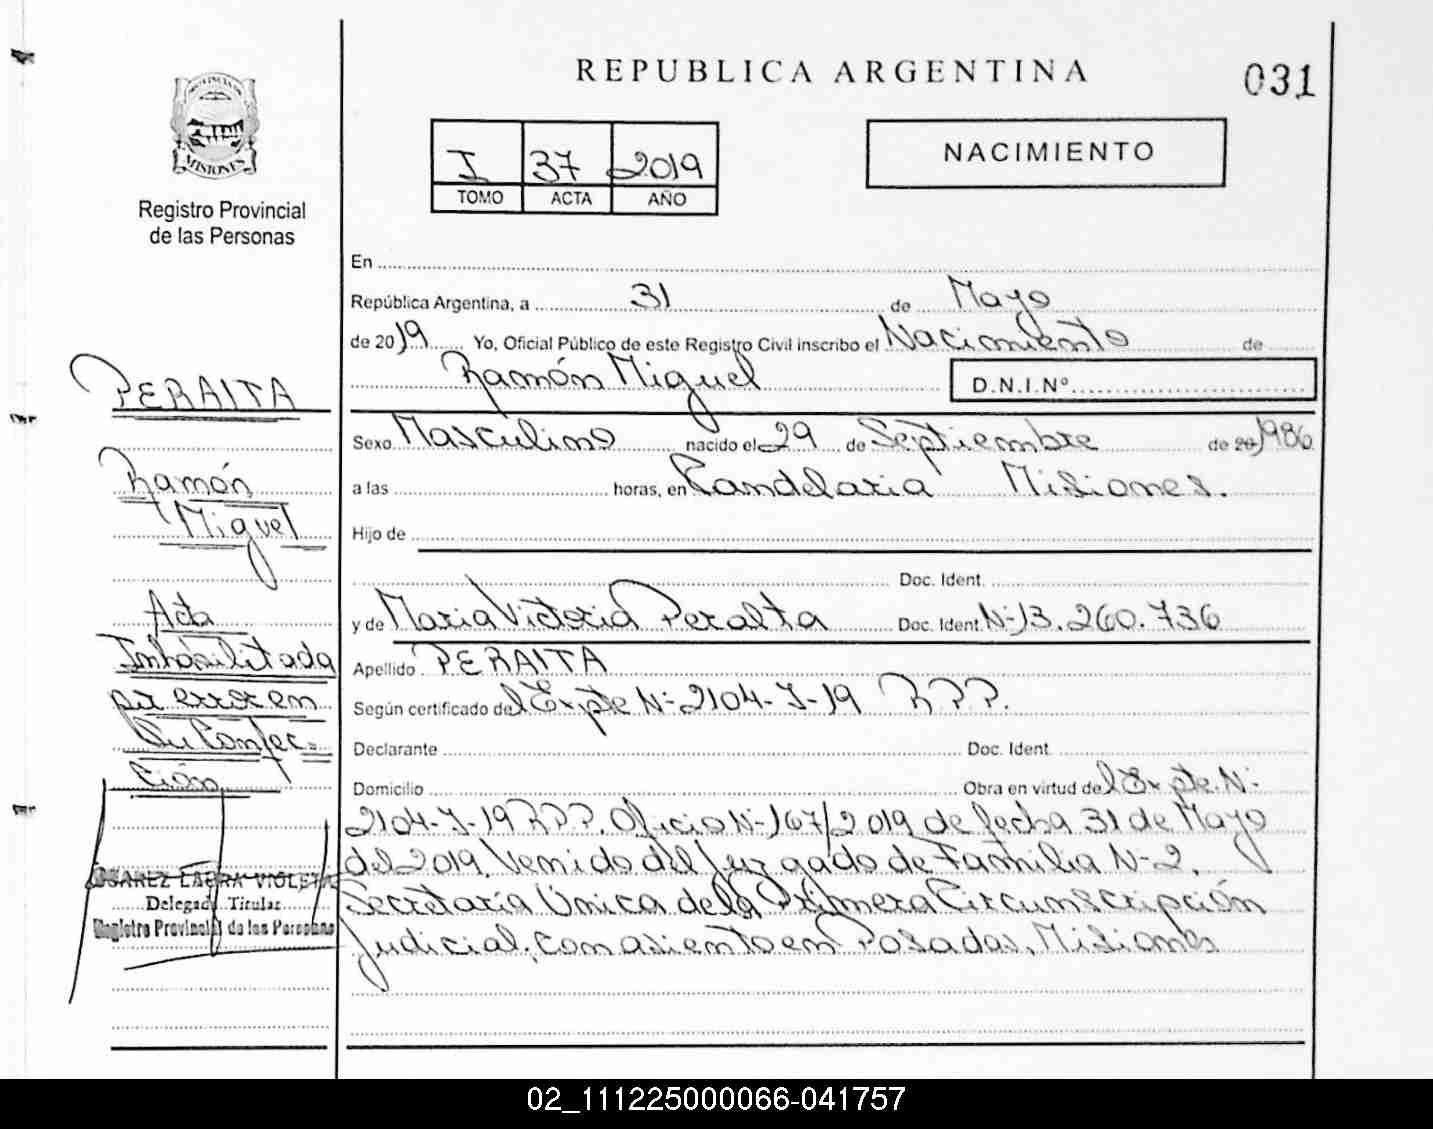 REPUBLICA ARGENTINA
031
MISIONES
Registro Provincial
de las Personas
I 37 2019
TOMO ACTA AÑO
NACIMIENTO
En
República Argentina, a 31 de Mayo
de 2019 Yo, Oficial Público de este Registro Civil inscribo el Nacimiento de
Ramón Miguel D.N.I.Nº
Sexo Masculino nacido el 29 de Septiembre de 20 1986
a las horas, en Candelaria Misiones.
Hijo de
Doc. Ident.
y de Maria Victoria Peralta Doc. Ident. N-13.260.736
Apellido PERALTA
Según certificado del Expte N-2104-J-19 RPP.
Declarante Doc. Ident.
Domicilio Obra en virtud del Expte. N-
2104-J-19 RPP. Oficio N-167/2019 de fecha 31 de Mayo
del 2019, Venido del Juzgado de Familia N-2,
Secretaría Única de la Primera Circunscripción
Judicial, con asiento en Posadas, Misiones
PERALTA
Ramón
Miguel
Acta
Inhabilitada
por error en
su Confec-
ción
SUAREZ LAURA VIOLETA
Delegada Titular
Registro Provincial de las Personas
02_111225000066-041757